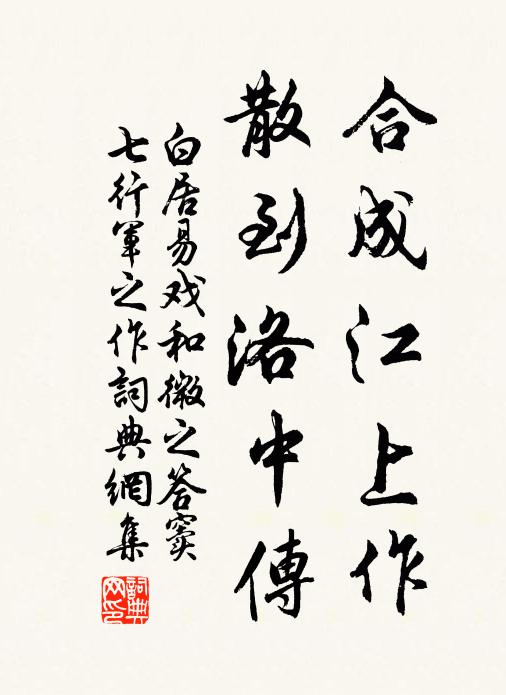 合成江上作
散到洛中傳
白居易戏和微之答窦
七行軍之作詞典網集
詞典
网印